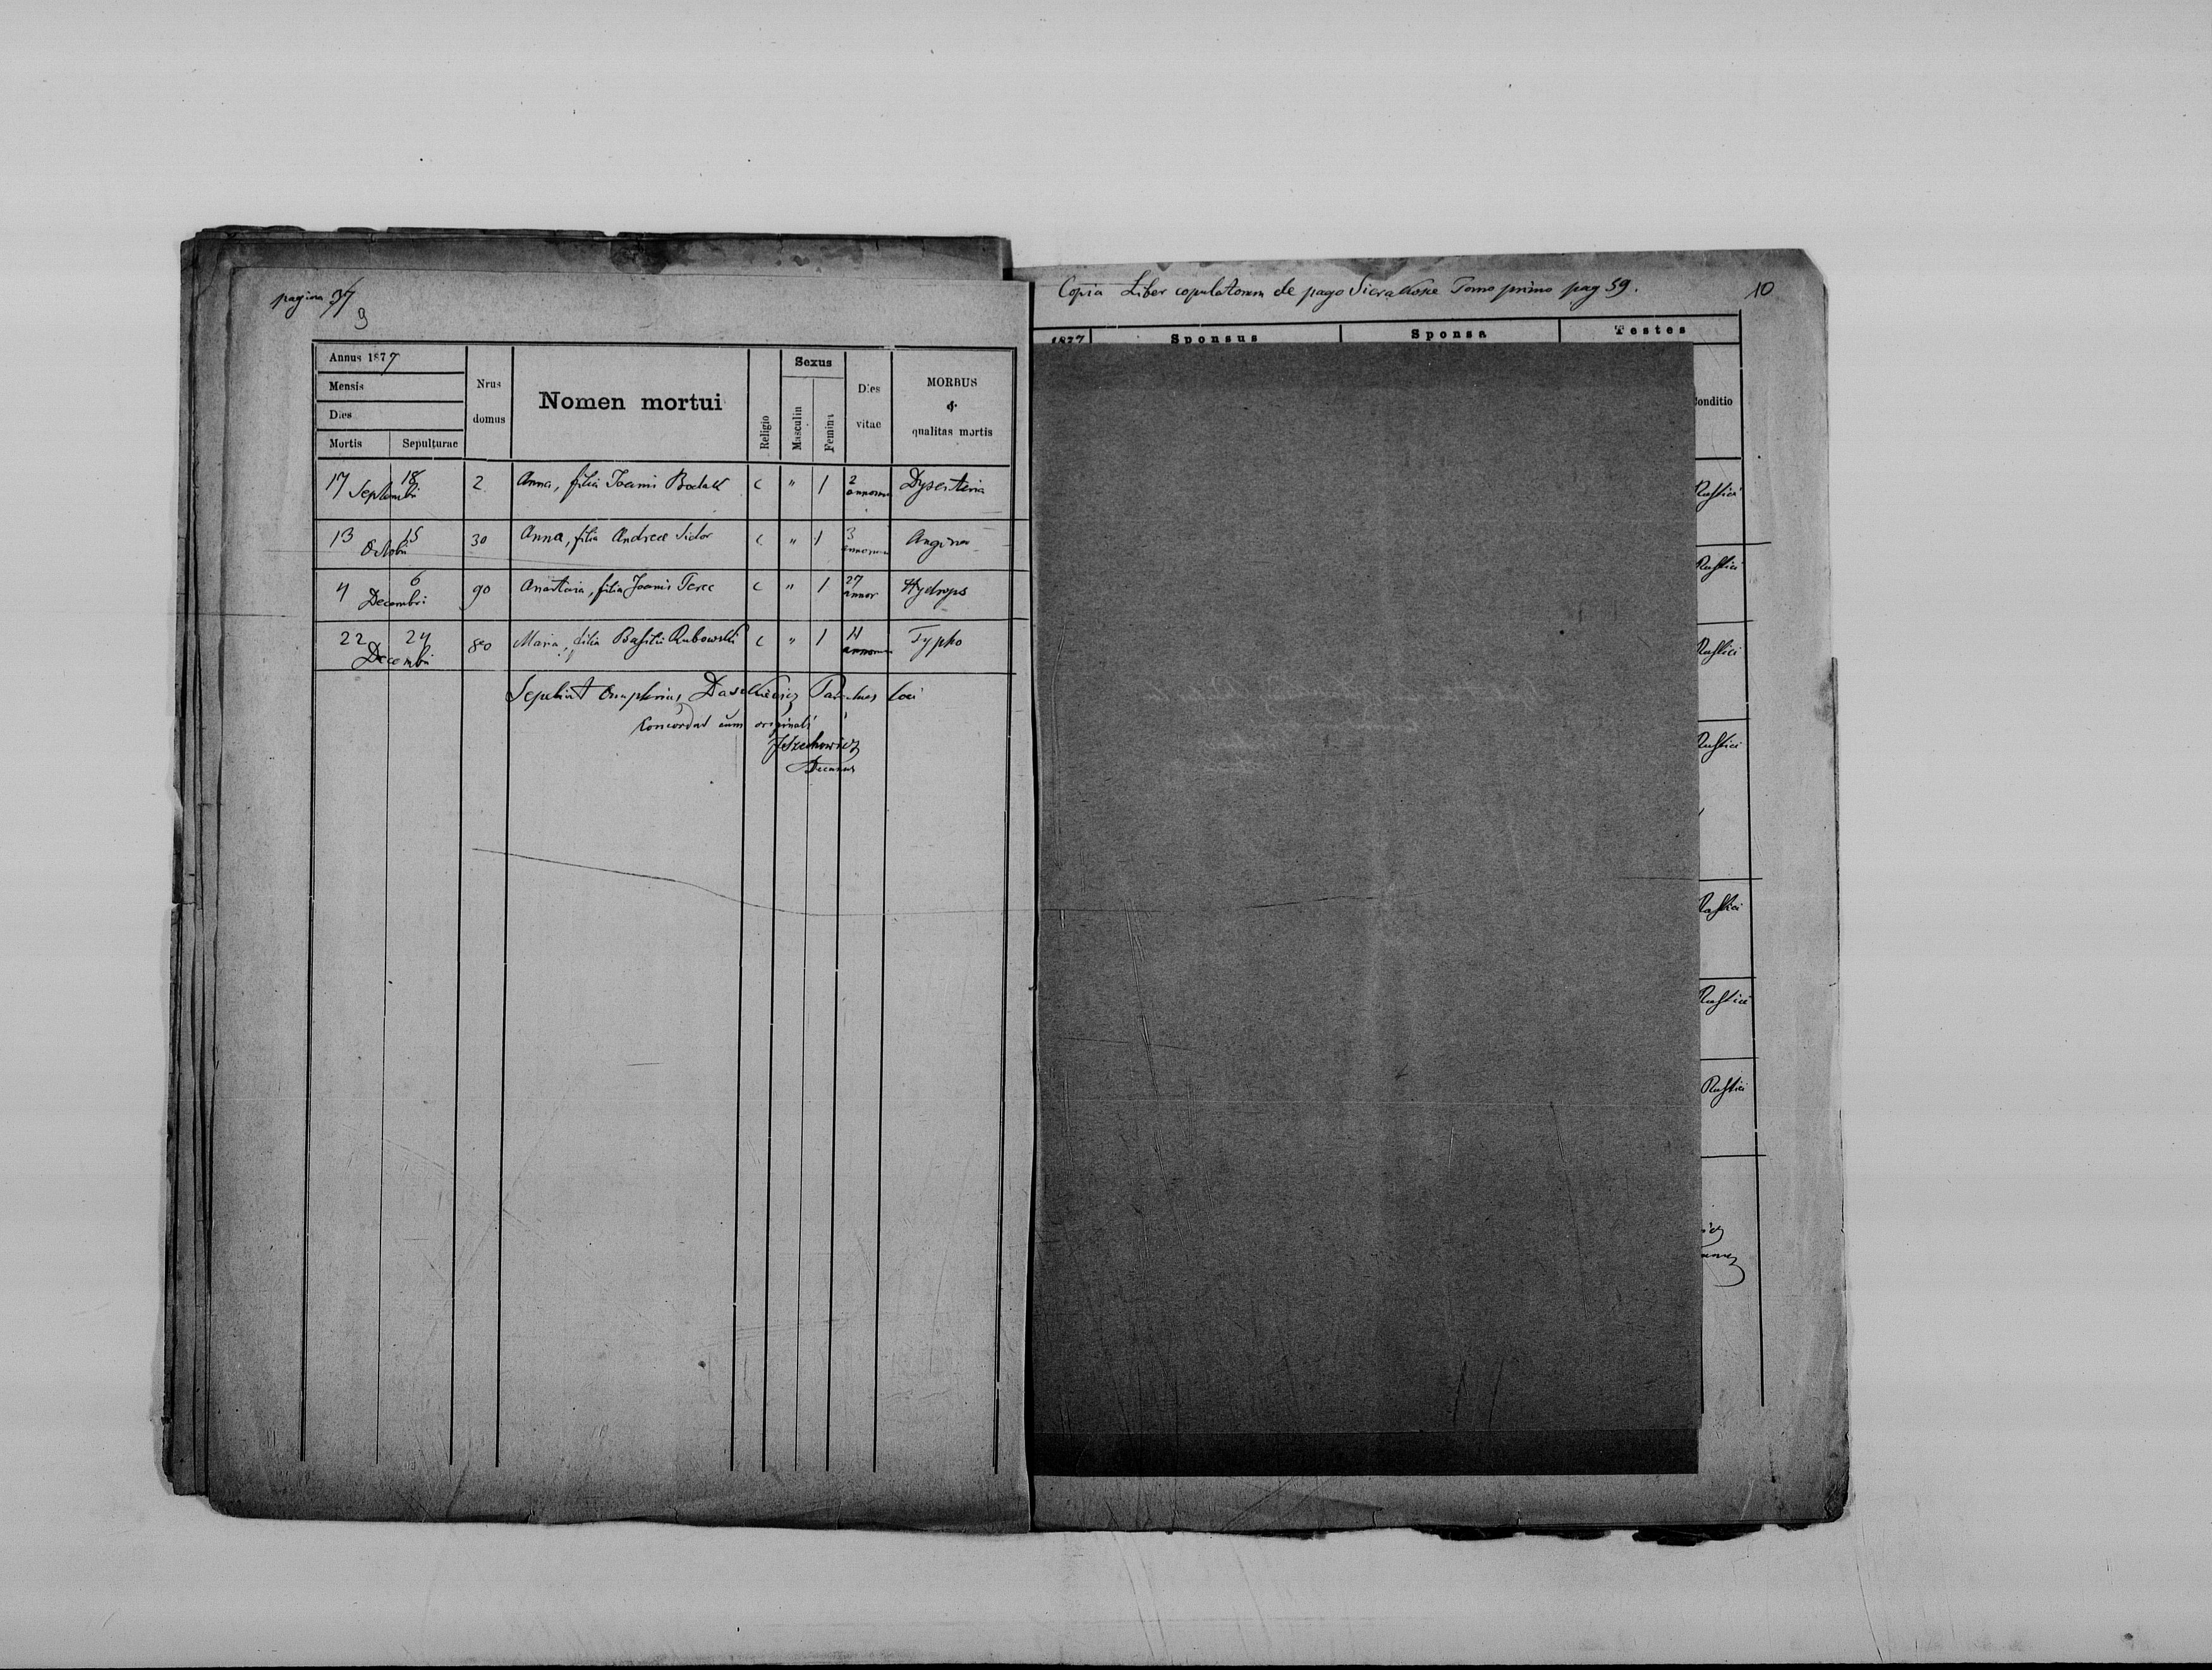 pagina 37
9
Annus 1877
Mensis
Dies
Mortis
Sepulturae
Nrus
domus
Nomen mortui
Religio
Sexus
Masculin
Femina
Dies
vitae
MORBUS
&
qualitas mortis
17 18 Septembri 2 Anna, filia Joanni c " 1 2 annorum Dysenteria
13 15 Octobri 30 Anna, filia Andreae Sidor c " 1 3 annorum Angina
4 6 Decembri 90 Anastasia, filia Joannis c " 1 27 annor Hydrops
22 24 Decembri 80 Maria, filia Basilii Rubowski c " 1 annorum Typho
Sepelivit Parochus loci
Concordat cum originali
Decanus
Copia Liber copulatorum de pago Tomo primo pag 59.
10
1877
Sponsus
Sponsa
Testes
Conditio
Rustici
Rustici
Rustici
Rustici
Rustici
Rustici
Rustici